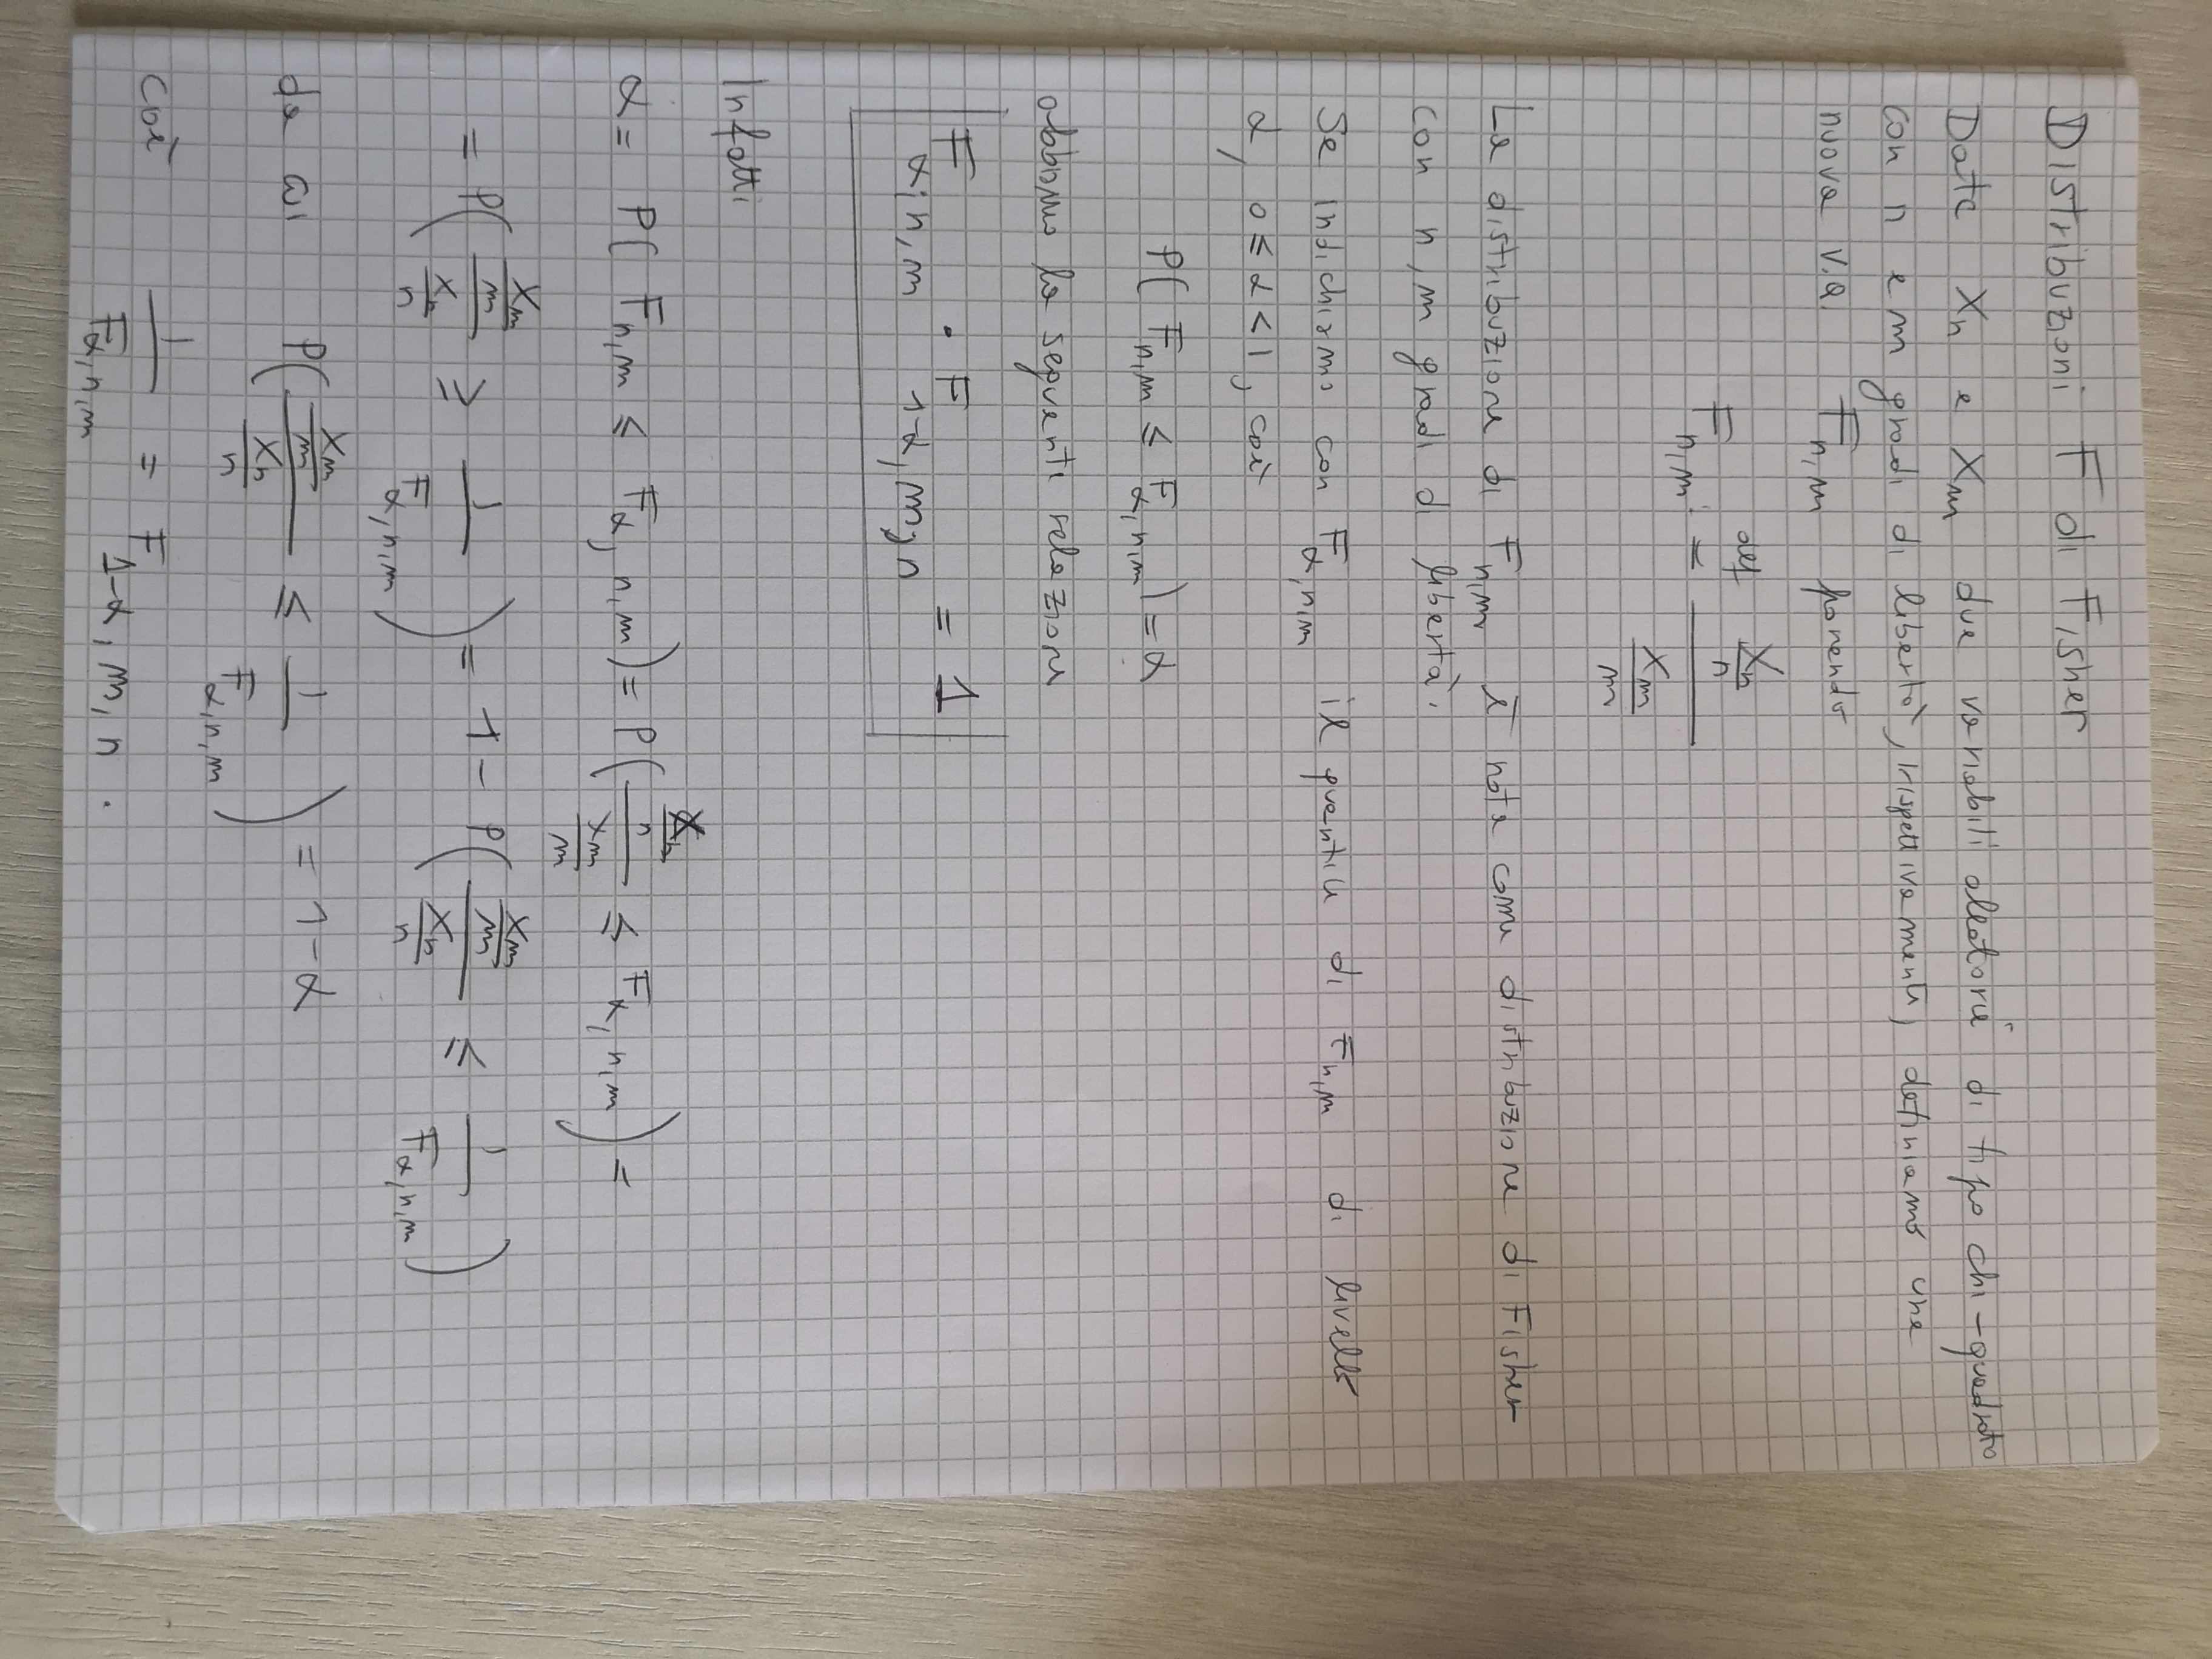 Distribuzioni F di Fisher
Date Xn e Xm due variabili aleatorie di tipo chi-quadrato
con n e m gradi di libertà, rispettivamente, definiamo una
nuova v.a. F_{n,m} ponendo
F_{n,m} \overset{def}{=} \frac{\frac{X_n}{n}}{\frac{X_m}{m}}
La distribuzione di F_{n,m} è nota come distribuzione di Fisher
con n, m gradi di libertà.
Se indichiamo con F_{α,n,m} il quantile di F_{n,m} di livello
α, 0 ≤ α < 1, cioè
P( F_{n,m} ≤ F_{α,n,m} ) = α
abbiamo la seguente relazione
F_{α,n,m} · F_{1-α,m,n} = 1
Infatti
α = P( F_{n,m} ≤ F_{α,n,m} ) = P( \frac{\frac{X_n}{n}}{\frac{X_m}{m}} ≤ F_{α,n,m} ) =
= P( \frac{\frac{X_m}{m}}{\frac{X_n}{n}} ≥ \frac{1}{F_{α,n,m}} ) = 1 - P( \frac{\frac{X_m}{m}}{\frac{X_n}{n}} ≤ \frac{1}{F_{α,n,m}} )
da cui P( \frac{\frac{X_m}{m}}{\frac{X_n}{n}} ≤ \frac{1}{F_{α,n,m}} ) = 1 - α
cioè \frac{1}{F_{α,n,m}} = F_{1-α,m,n} .